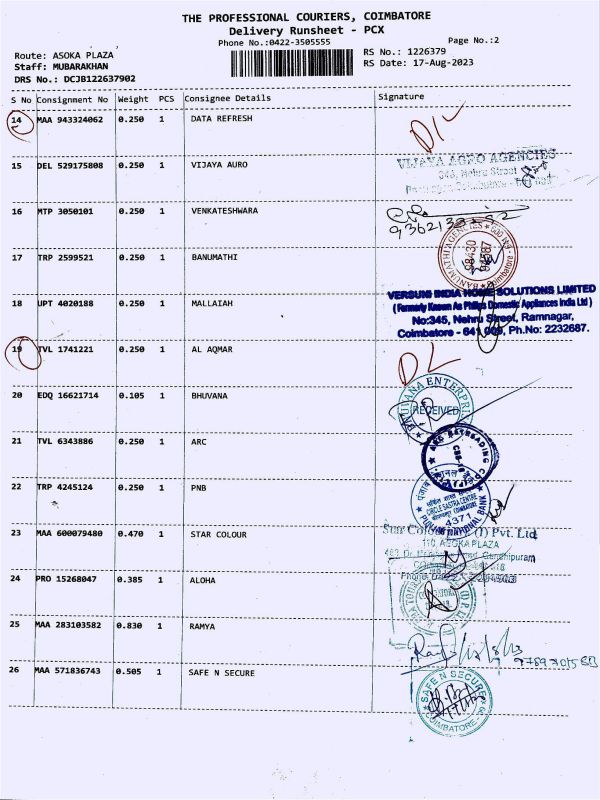 THE PROFESSIONAL COURIERS, COIMBATORE
Delivery Runsheet - PCX
Phone No.:0422-3505555
Page No.:2
Route: ASOKA PLAZA
RS No.: 1226379
Staff: MUBARAKHAN
RS Date: 17-Aug-2023
DRS No.: DCJB122637902
S No Consignment No Weight PCS Consignee Details Signature
14 MAA 943324062 0.250 1 DATA REFRESH
D/L
15 DEL 529175808 0.250 1 VIJAYA AURO
VIJAYA AGRO AGENCIES
345, Nehru Street
16 MTP 3050101 0.250 1 VENKATESHWARA
17 TRP 2599521 0.250 1 BANUMATHI
BANUMATHI AGENCIES
18 UPT 4020188 0.250 1 MALLAIAH
VERSUNI INDIA HOME SOLUTIONS LIMITED
( Formerly Known As Philips Domestic Appliances India Ltd )
No:345, Nehru Street, Ramnagar,
Coimbatore - 641 009, Ph.No: 2232687.
19 TVL 1741221 0.250 1 AL AQMAR
DL
20 EDQ 16621714 0.105 1 BHUVANA
RECEIVED
21 TVL 6343886 0.250 1 ARC
22 TRP 4245124 0.250 1 PNB
पंजाब नैशनल बैंक
CIRCLE SASTRA CENTRE
4371
PUNJAB NATIONAL BANK
23 MAA 600079480 0.470 1 STAR COLOUR
(I) Pvt. Ltd
110, ASOKA PLAZA
Gandhipuram
24 PRO 15268047 0.385 1 ALOHA
25 MAA 283103582 0.830 1 RAMYA
26 MAA 571836743 0.505 1 SAFE N SECURE
SAFE N SECURE
COIMBATORE